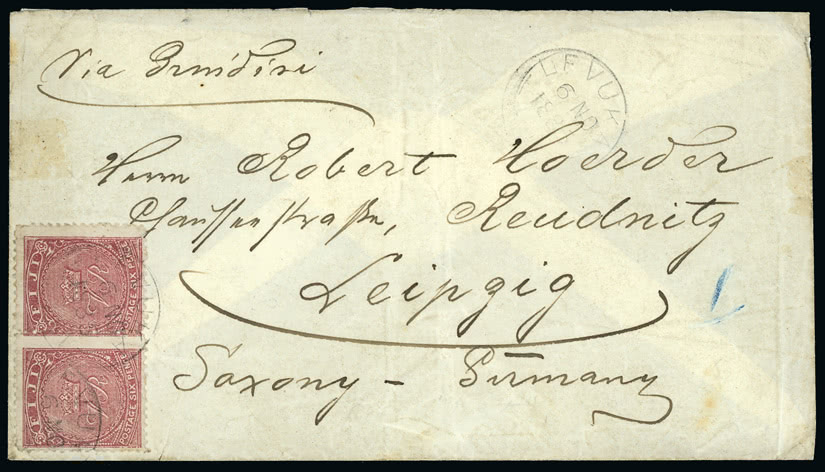 Via Brindisi
LEVUK
NO 9
Herrn Robert Hoerder
Chausseestraße, Reudnitz
Leipzig
Saxony – Germany
FIJI
POSTAGE SIX PENCE
FIJI
POSTAGE SIX PENCE